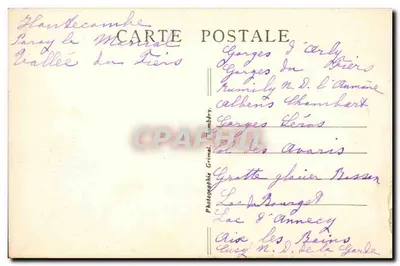 CARTE POSTALE
Hautecombe
Paray le Monial
Vallée du Fiers
Gorges d'Arly
Gorges du Fiers
Rumilly N. D. l'Aumône
Albens Chambart
Gorges Céros
Col des Avaris
Grotte glacier Bessan
Lac du Bourget
Lac d'Annecy
Aix les Bains
Cusy N. D. de la Garde
Photographie Grimal, Chambéry